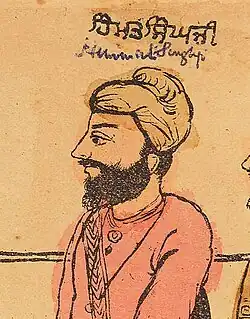 ਹਿੰਮਤ ਸਿੰਘ ਜੀ
Himmat Singh ji